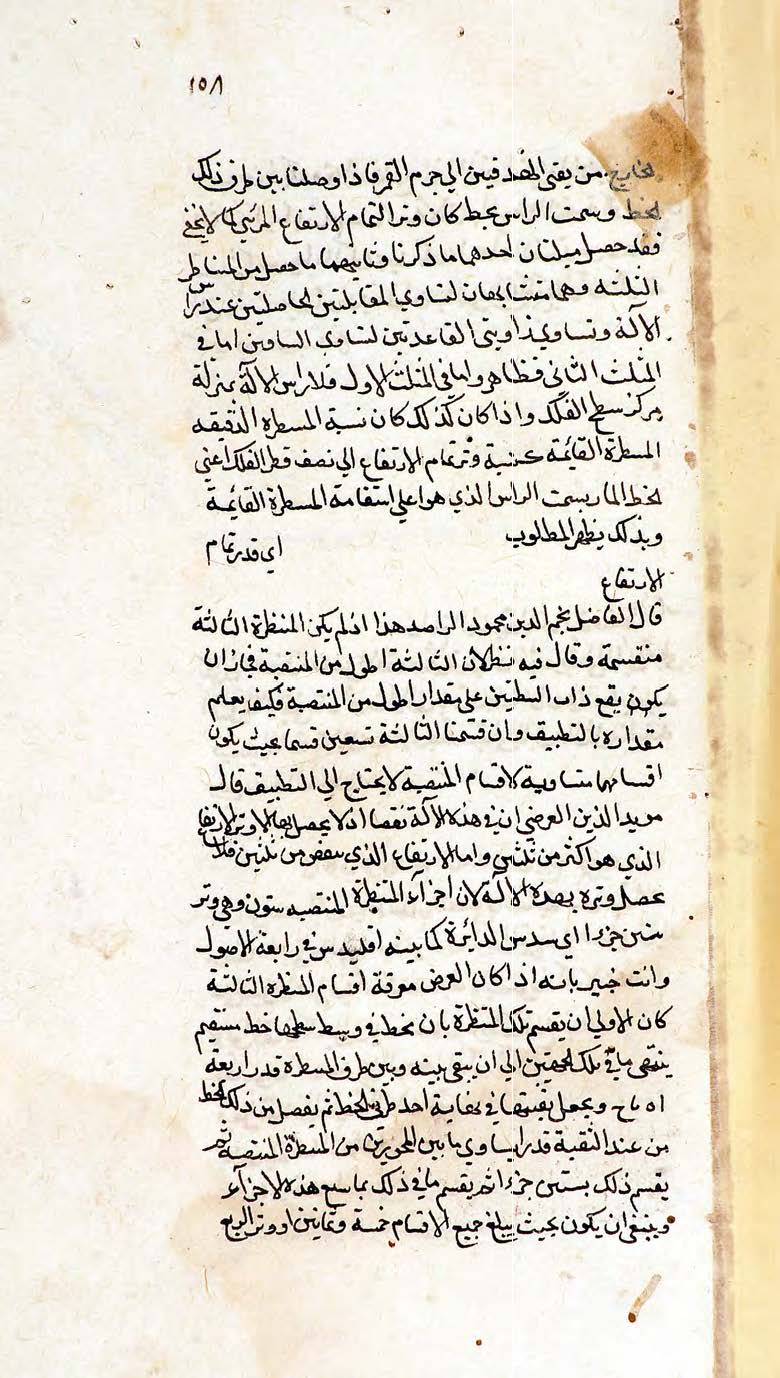 ١٥٨
الخارج من ثقبتى الهدفتين الي جرم القمر فاذا وصلنا بين طرف ذلك
الخط وسمت الراس بخط كان وترا لتمام الارتفاع المرئي كما لا يخفي
فقد حصل مثلثان احدهما ما ذكرنا وثانيهما ما حصل من المناظر
الثلثه وهما متشابهان لتساوي المقابلتين الحاصلتين عند راس
الآلة وتساوي زاويتى القاعدتين لتساوي الساقين اما في
المثلث الثاني فظاهر واما في المثلث الاول فلان راس الآلة بمنزلة
مركز سطح الفلك واذا كان كذلك كان نسبة المسطرة الدقيقه
المسطرة القائمة كنسبة وتر تمام الارتفاع الي نصف قطر الفلك اعني
الخط المار بسمت الراس الذي هو اعلي استقامة المسطرة القائمة
وبذلك يظهر المطلوب اي قدر تمام
الارتفاع
قال الفاضل نجم الدين محمود الراصد هذا اذا لم يكن المنظرة الثالثة
منقسمة وقال فيه نظر لان الثالثة اطول من المنتصبة فجاز ان
يكون يقع ذات الشظيتين علي مقدار اطول من المنتصبة فكيف يعلم
مقداره بالتطبيق وان قسمنا الثالثة تسعين قسما بحيث يكون
اقسامها متساوية لاقسام المنتصبة لا يحتاج الي التطبيق قال
مويد الدين العرضي ان في هذه الآلة نقصا اذ لا يحصل بها الا وتر الارتفاع
الذي هو اكثر من ثلثين واما الارتفاع الذي ينقص من ثلثين فلا
يحصل وتره بهذه الآلة لان اجزآء المنظرة المنتصبه ستون وهي وتر
ستين جزءا اي سدس الدائرة كما بينه اقليدس في رابعة الاصول
وانت خبير بانه اذا كان الغرض معرفة اقسام المنظرة الثالثة
كان الاولي ان يقسم تلك المنظرة بان يخط في وسط سطحها خط مستقيم
ينتهى في تلك الجهتين الي ان يبقى بينه وبين طرف المسطرة قدر اربعة
ويجعل ثقبتها في نهاية احد طرفي الخط ثم يفصل من ذلك الخط
من عند الثقبة قدرا يساوي ما بين المحورين من المسطرة المنتصبة ثم
يقسم ذلك بستين جزءا ثم يقسم ما في ذلك بما سع هذه الاجزآء
وينبغى ان يكون بحيث يبلغ جميع الاقسام خمسة وثمانين او وتر الربع